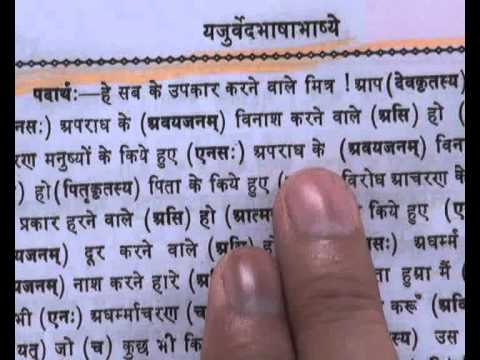 यजुर्वेदभाषाभाष्ये
पदार्थः—हे सब के उपकार करने वाले मित्र ! आप (देवकृतस्य)
एनसः) अपराध के (अवयजनम्) विनाश करने वाले (असि) हो (
मनुष्यों के किये हुए (एनसः) अपराध के (अवयजनम्)
) हो (पितृकृतस्य) पिता के किये हुए विरोध आचरण के
प्रकार हरने वाले (असि) हो के किये हुए
दूर करने वाले (असि) अधर्म्म
नाश करने हारे हुआ मैं
भी (एनः) अधर्म्माचरण करूँ
जो (च) कुछ भी उस